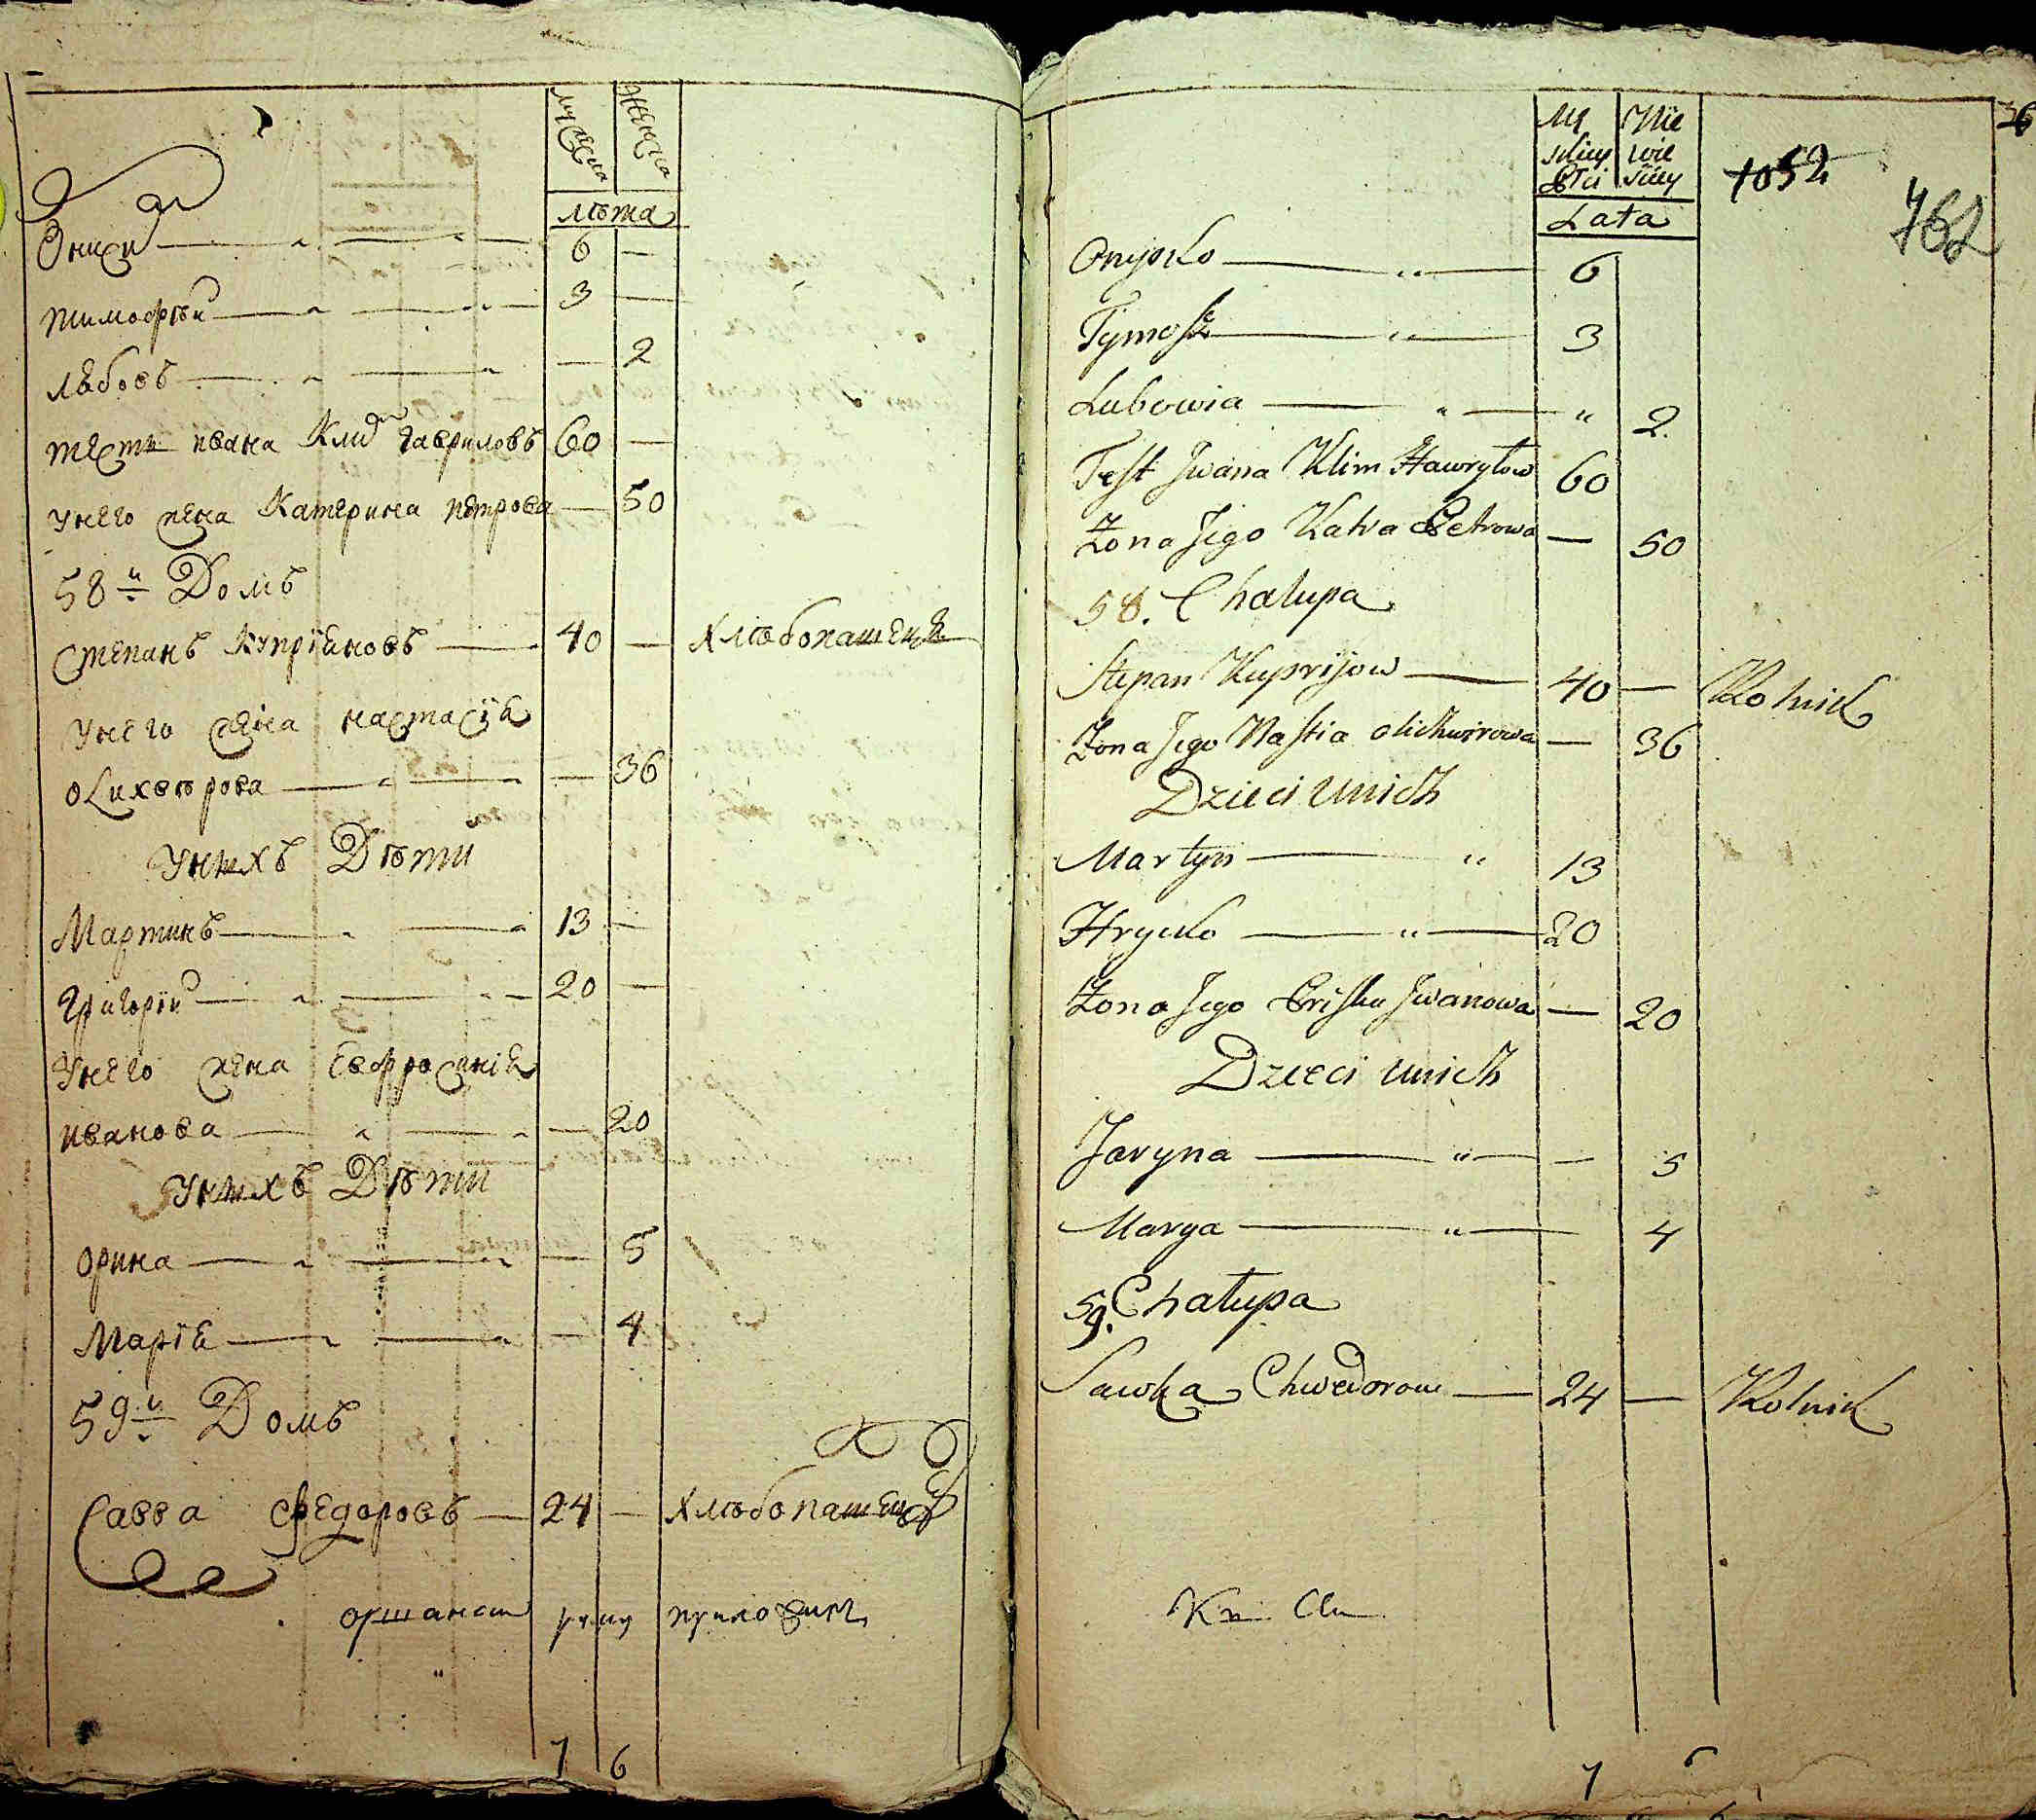 мужеска женска
лѣта
Ониси 6 —
тимофѣи 3 —
любовь — 2
тесть ивана Клим гавриловъ 60 —
унего жена Катерина петрова — 50
58й Домъ
степанъ куприяновъ 40 — хлѣбопашецъ
унего жена настасїя
олихвѣрова — 36
унихъ Дѣти
Мартинъ 13 —
григорїи 20 —
унего жена Евфросинїя
иванова — 20
унихъ Дѣти
орина — 5
Марїя — 4
59й Домъ
Савва федоровъ 24 — хлѣбопашецъ
7 6
36
1052
762
Lata
Onysko " 6
Tymoszk " 3
Lubowia " " 2
Test Jwana Klim Hawryłow 60
Żona Jego Katra Petrowa — 50
58. Chałupa
Stepan Kupryjow — 40 — Rolnik
Żona Jego Nastia Olichwirowa — 36
Dzieci unich
Martyn " 13
Hrycko " 20
Żona Jego Priska Jwanowa — 20
Dzieci unich
Jaryna " — 5
Marya " 4
59. Chałupa
Sawka Chwedorow — 24 — Rolnik
7 6